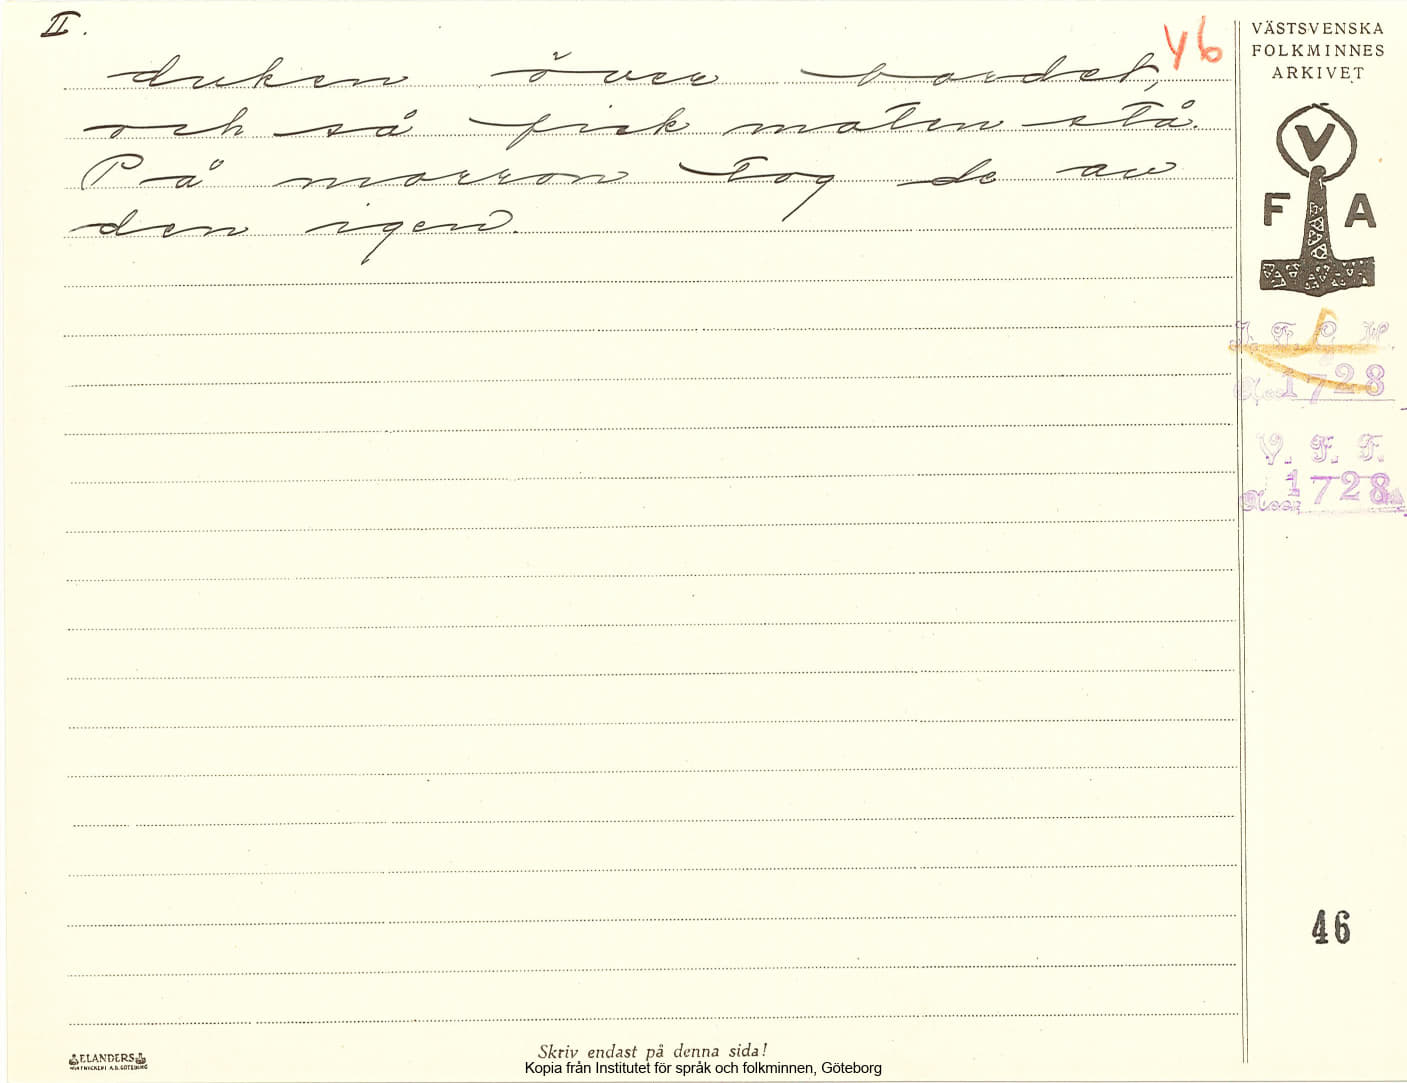 II.
46
duken över bordet,
och så fick maten stå.
På morron tog de av
den igen.
VÄSTSVENSKA
FOLKMINNES
ARKIVET
V
F A
I. F. G. H.
Acc. 1728
V. F. F.
Acc. 1728
46
ELANDERS
Skriv endast på denna sida!
Kopia från Institutet för språk och folkminnen, Göteborg